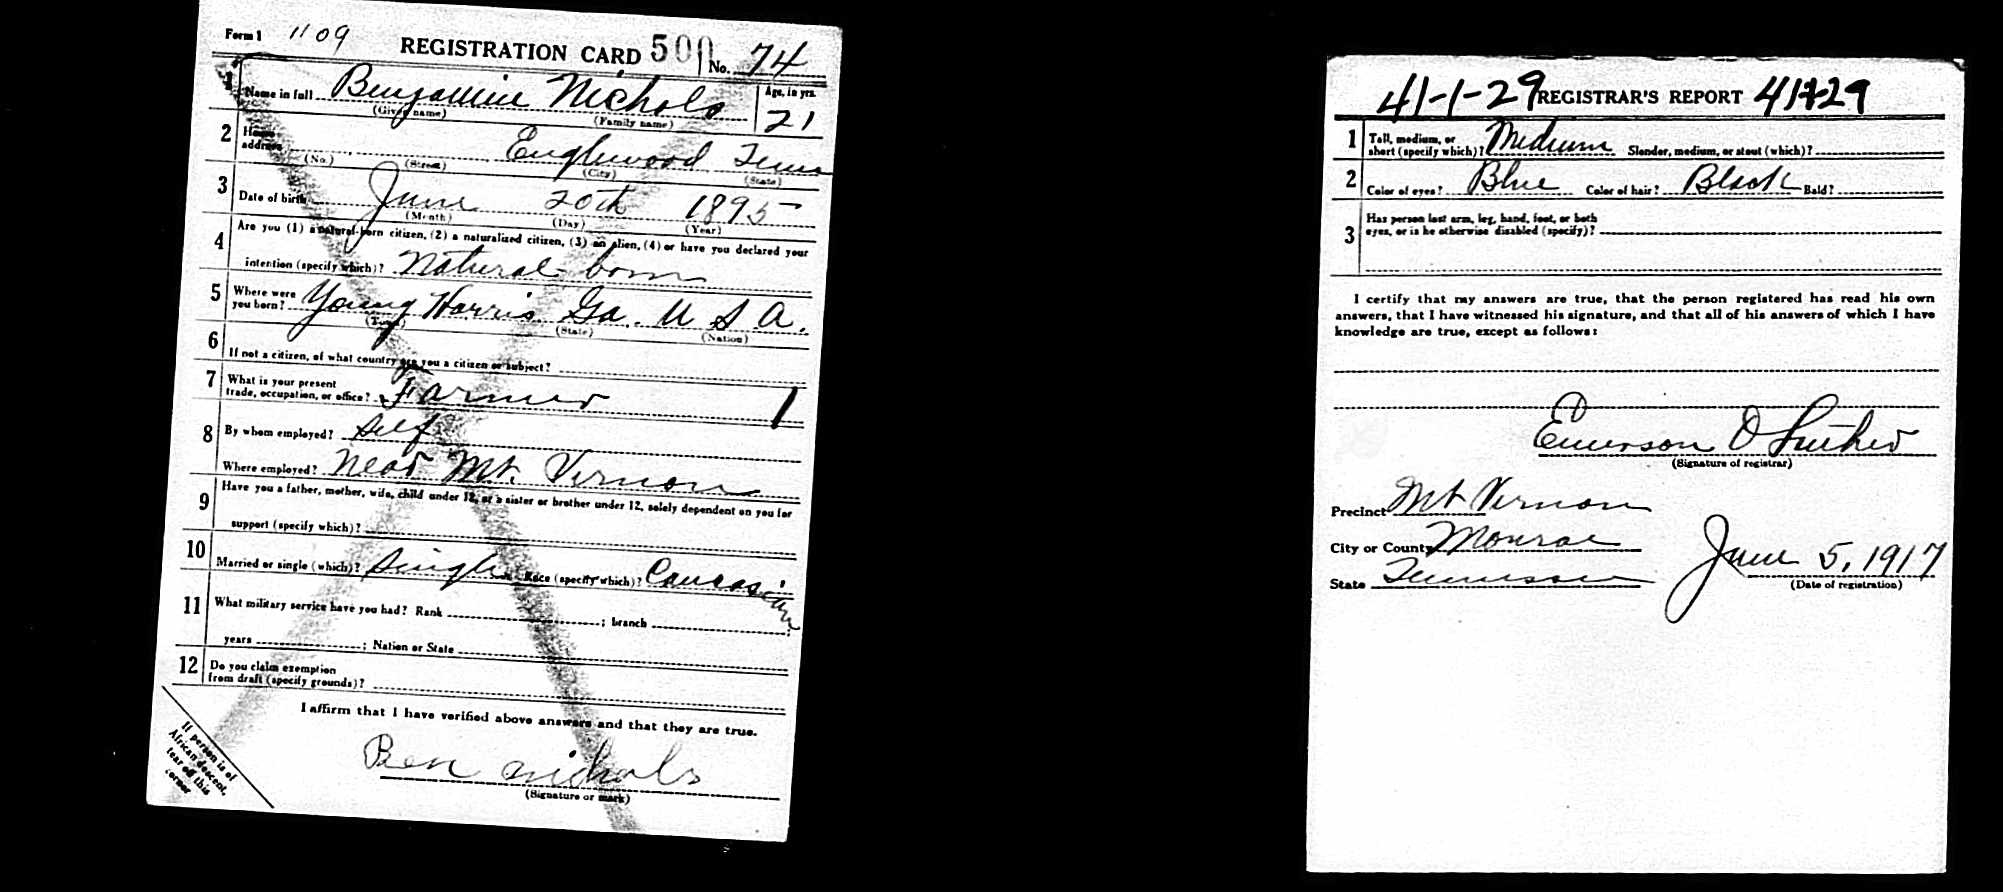 Form 1 1109 REGISTRATION CARD 500 No. 74
1 Name in full Benjamine Nichols Age, in yrs.
(Given name) (Family name) 21
2 Home address Englewood Tenn
(No.) (Street) (City) (State)
3 Date of birth June 20th 1895
(Month) (Day) (Year)
4 Are you (1) a natural-born citizen, (2) a naturalized citizen, (3) an alien, (4) or have you declared your
intention (specify which)? Natural-born
5 Where were you born? Young Harris Ga. U S A.
(Town) (State) (Nation)
6 If not a citizen, of what country are you a citizen or subject?
7 What is your present trade, occupation, or office? Farmer 1
8 By whom employed? Self
Where employed? Near Mt. Vernon
9 Have you a father, mother, wife, child under 12, or a sister or brother under 12, solely dependent on you for
support (specify which)?
10 Married or single (which)? Single Race (specify which)? Caucasian
11 What military service have you had? Rank ; branch ;
years ; Nation or State
12 Do you claim exemption
from draft (specify grounds)?
I affirm that I have verified above answers and that they are true.
Ben nichols
(Signature or mark)
If person is of
African descent,
tear off this
corner
41-1-29 REGISTRAR'S REPORT 41-1-29
1 Tall, medium, or
short (specify which)? Medium Slender, medium, or stout (which)?
2 Color of eyes? Blue Color of hair? Black Bald?
3 Has person lost arm, leg, hand, foot, or both
eyes, or is he otherwise disabled (specify)?
I certify that my answers are true, that the person registered has read his own
answers, that I have witnessed his signature, and that all of his answers of which I have
knowledge are true, except as follows:
Emerson O Luther
(Signature of registrar)
Precinct Mt Vernon
City or County Monroe
State Tennessee
June 5, 1917
(Date of registration)